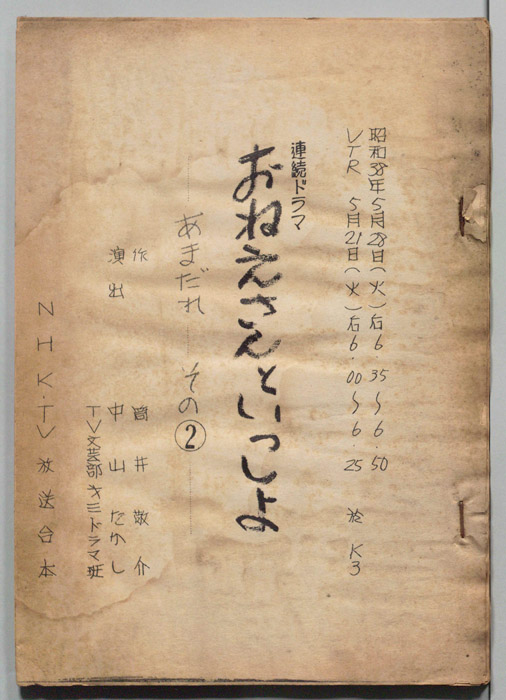 昭和38年5月28日(火)后6.35〜6.50
VTR 5月21日(火)后6.00〜6.25 於 K3
連続ドラマ
おねえさんといっしょ
あまだれ その②
作 筒井敬介
演出 中山たかし
TV文芸部キミドラマ班
NHK・TV放送台本